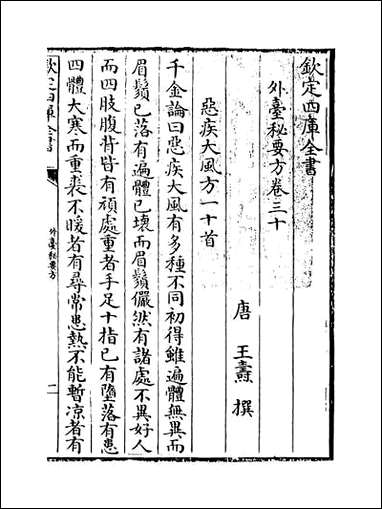 欽定四庫全書
外臺秘要方卷三十
唐 王燾 撰
惡疾大風方一十首
千金論曰惡疾大風有多種不同初得雖遍體無異而
眉鬚已落有遍體已壞而眉鬚儼然有諸處不異好人
而四肢腹背皆有頑處重者手足十指已有墮落有患
四體大寒而重裘不暖者有尋常患熱不能暫凉者有
欽定四庫全書
外臺秘要方
二